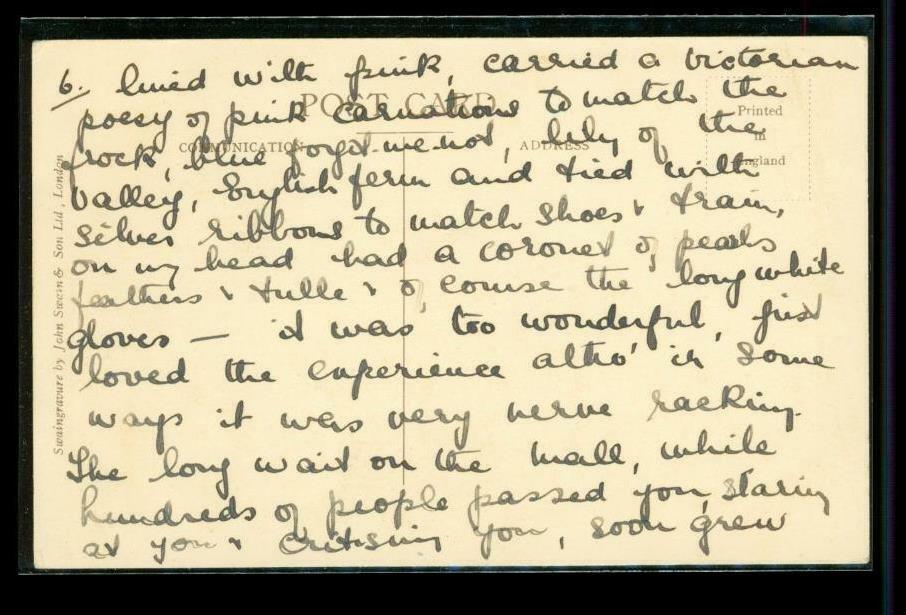 6. lined with pink, carried a Victorian
poesy of pink carnations to match the
frock, blue forget-me-not, lily of the
valley, English fern and tied with
silver ribbons to match shoes & train,
on my head had a coronet of pearls
feathers & tulle & of course the long white
gloves — it was too wonderful, just
loved the experience altho' in some
ways it was very nerve racking.
The long wait on the Mall, while
hundreds of people passed you, staring
at you & critising you, soon grew
POST CARD
COMMUNICATION
ADDRESS
Printed
in
England
Swaingravure by John Swain & Son Ltd., London